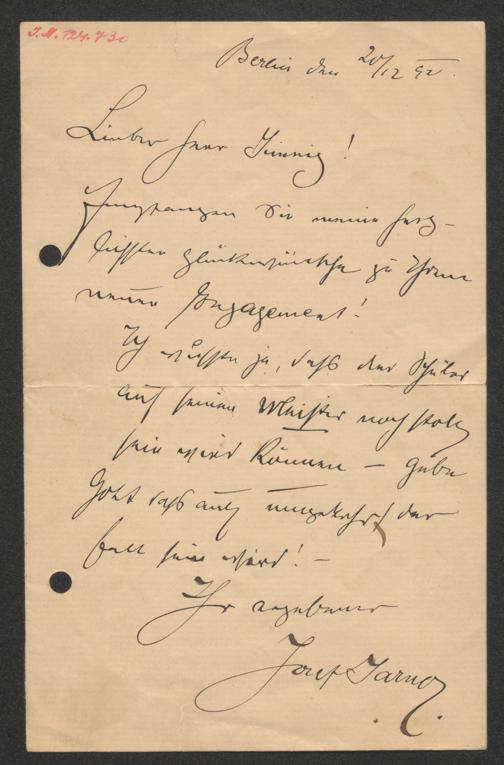 J.N. 124.730
Berlin den 20/12 92.
Lieber Herr
Empfangen Sie meine herz-
lichsten Glückwünsche zu Ihrem
neuen Engagement!
Ich wußte ja, daß der Schüler
auf seinen Meister noch stolz
sein wird können – gebe
Gott daß auch umgekehrt der
Fall sein wird! –
Ihr ergebener
Josef Jarno